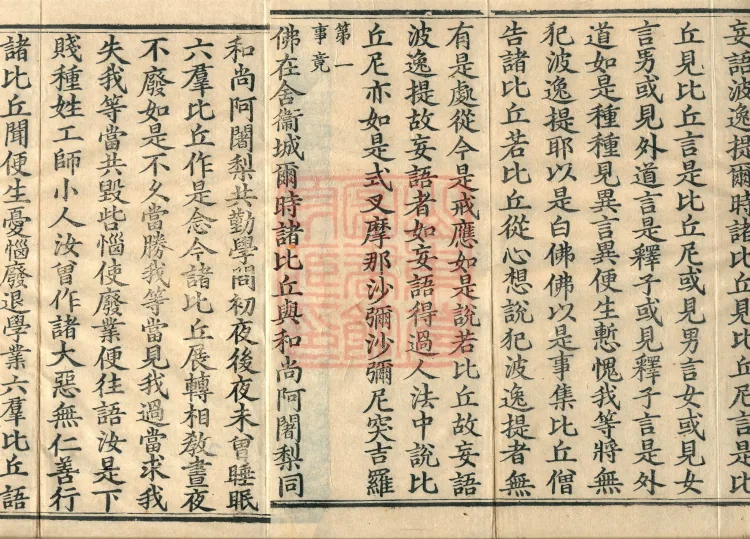 妄語波逸提爾時諸比丘見比丘尼言是比
丘見比丘言是比丘尼或見男言女或見女
言男或見外道言是釋子或見釋子言是外
道如是種種見異言異便生慙愧我等將無
犯波逸提耶以是白佛佛以是事集比丘僧
告諸比丘若比丘從心想說犯波逸提者無
有是處從今是戒應如是說若比丘故妄語
波逸提故妄語者如妄語得過人法中說比
丘尼亦如是式叉摩那沙彌沙彌尼突吉羅
第一
事竟
佛在舍衞城爾時諸比丘與和尚阿闍梨同
和尚阿闍梨共勤學問初夜後夜未曾睡眠
六羣比丘作是念今諸比丘展轉相教晝夜
不廢如是不久當勝我等當見我過當求我
失我等當共毀呰惱使廢業便往語汝是下
賤種姓工師小人汝曾作諸大惡無仁善行
諸比丘聞便生憂惱廢退學業六羣比丘語